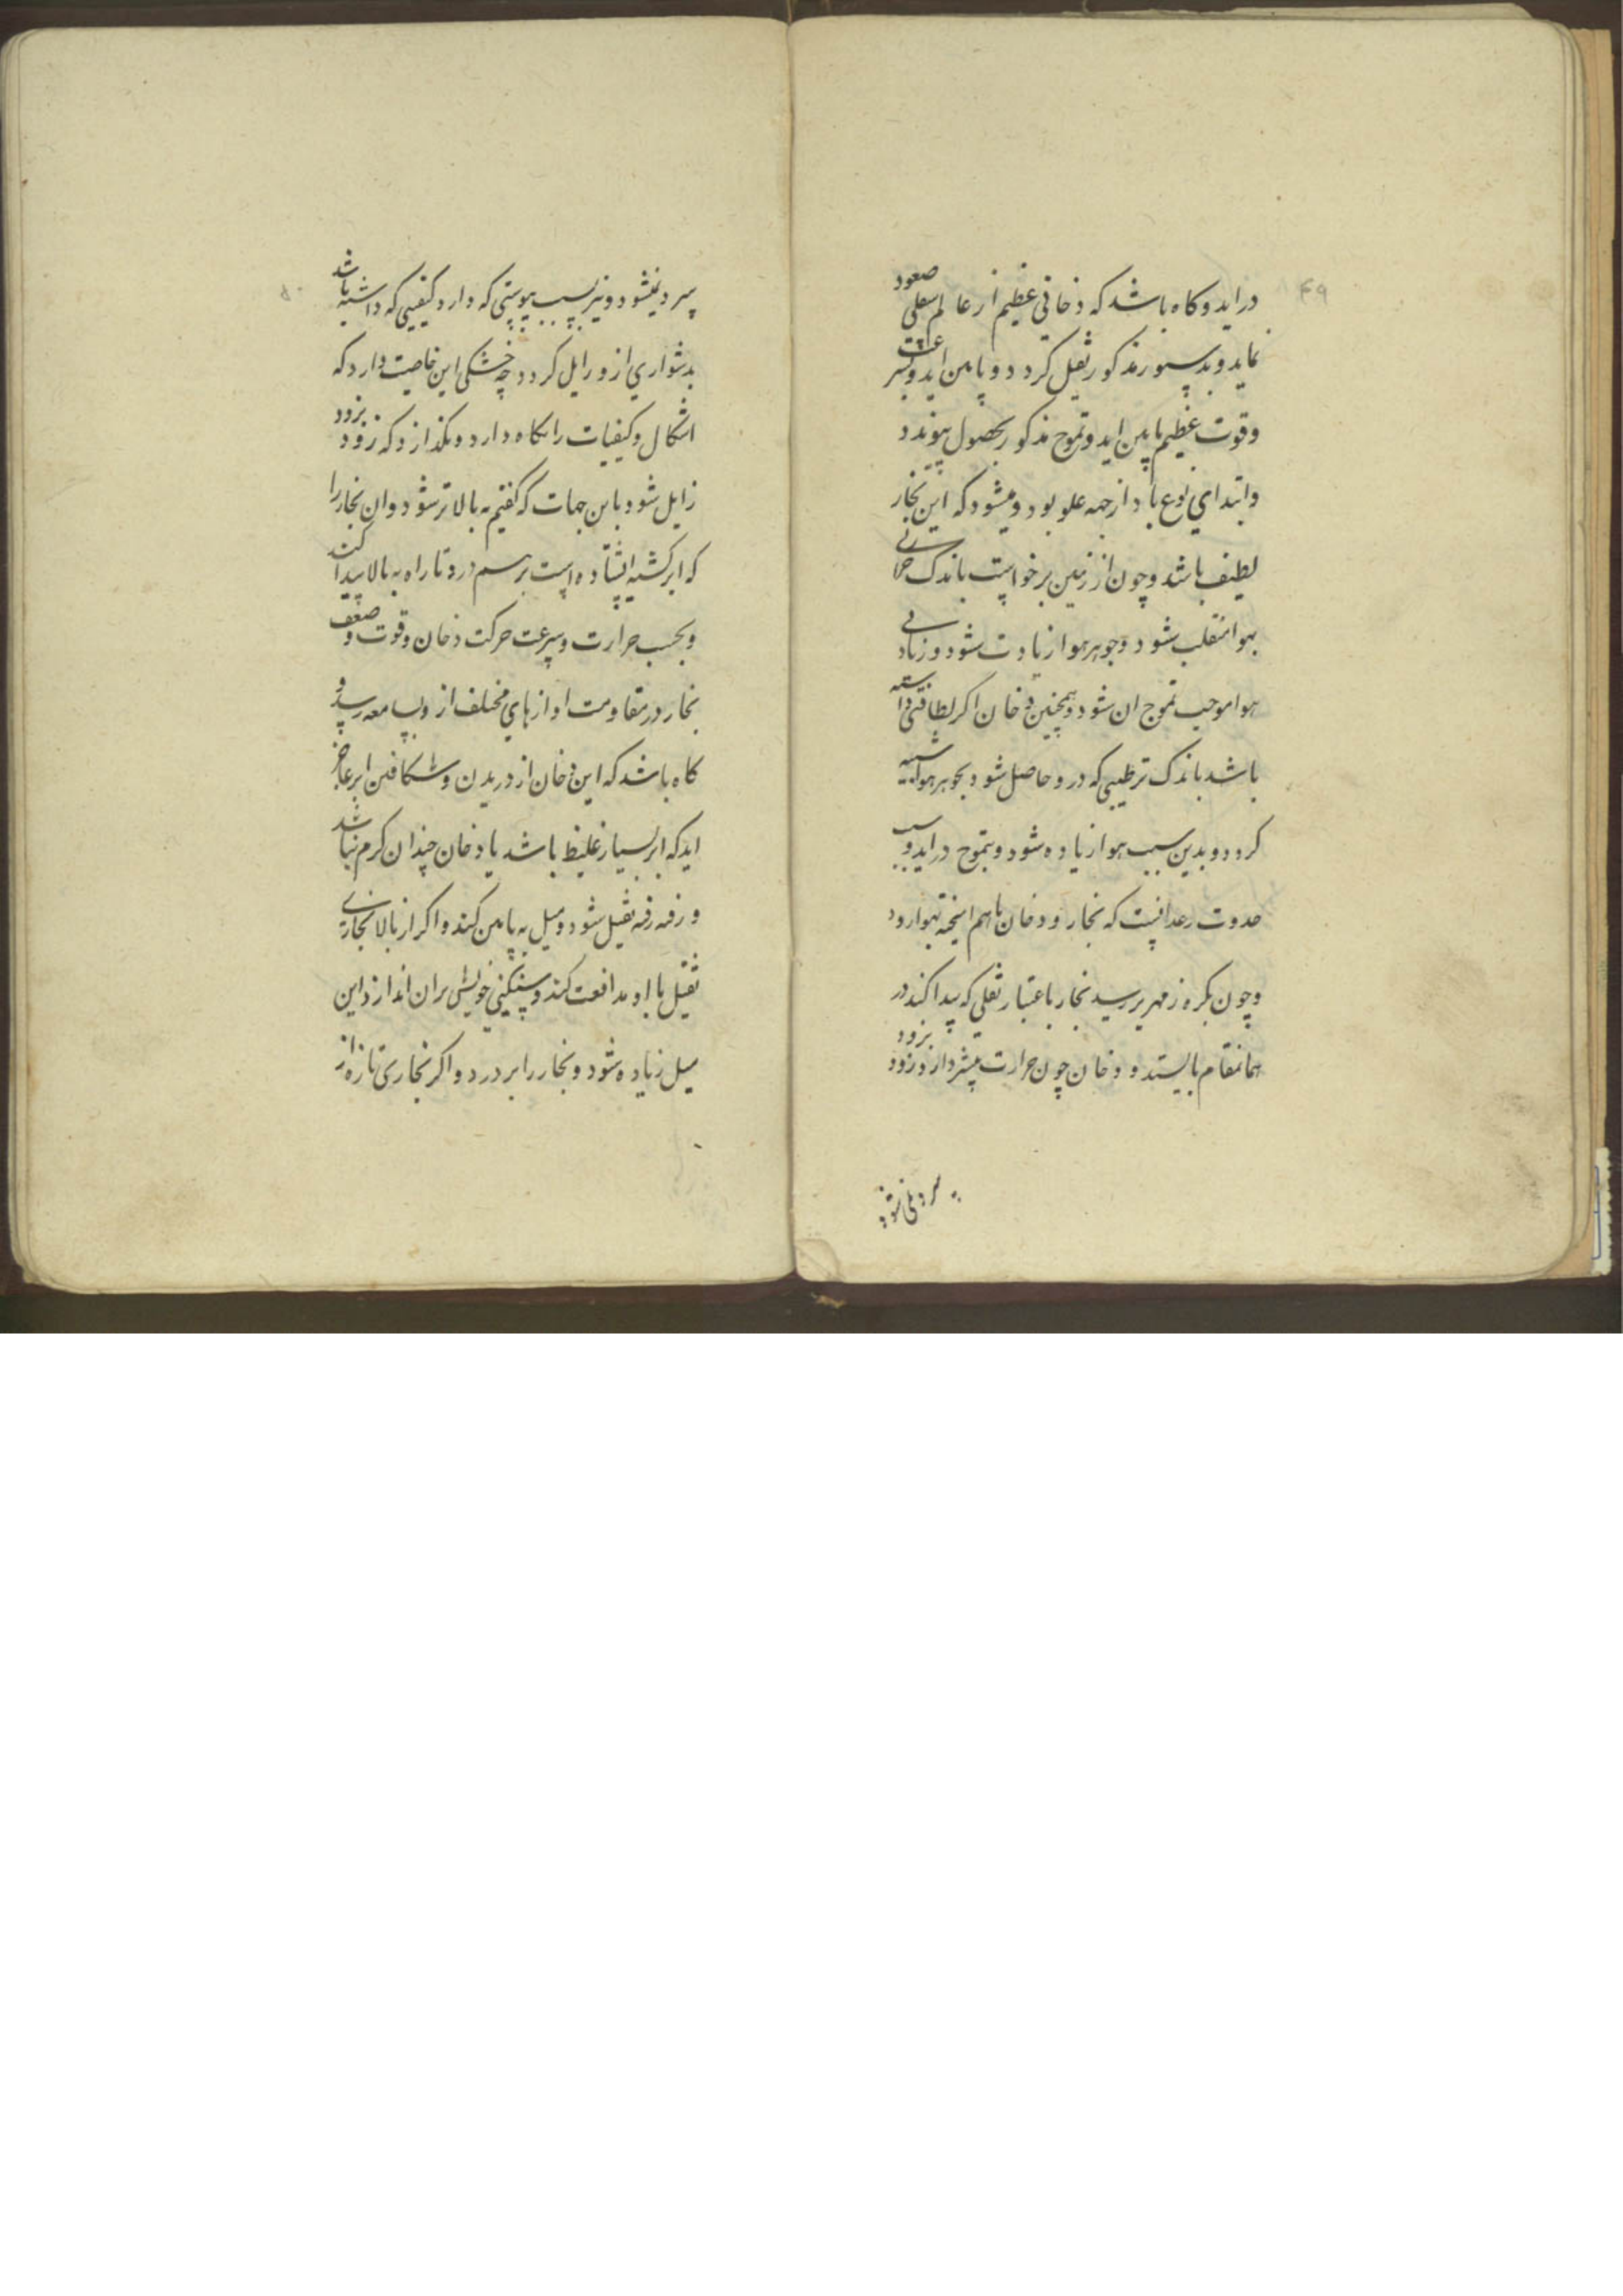 ۴۹
دراید و کاه باشد که دخانی عظیم از عالم اسفلی صعود
نماید و بدستور مذکور ثقیل کردد و پاین اید و بسرعت
و قوت عظیم پاین اید و تموج مذکور بحصول پیوندد
و ابتدای نوع باد از جهه علو بود و میشود که این بخار
لطیف باشد و چون از زمین برخواست باندک حرارتی
بهوا منقلب شود و جوهر هوا زیادت شود و زیادتی
هوا موجب تموج ان شود و همچنین دخان اکر لطافتی داشته
باشد باندک ترطیبی که درو حاصل شود بجوهر هوا شبیه
کردد و بدین سبب هوا زیاده شود و بتموج دراید و سبب
حدوث رعد انیست که بخار و دخان باهم امیخته بهوا رود
و چون بکره زمهریر رسید بخار باعتبار ثقلی که پیدا کند در
همانمقام بایستد و دخان چون حرارت بیشتر دارد و زود بزود
سرد نمی شود
۵۰
سرد نمیشود و نیز بسبب یبوستی که دارد کیفیتی که داشته باشد
بدشواری ازو زایل کردد چه خشکی این خاصیت دارد که
اشکال و کیفیات را نکاه دارد و نکذارد که زود بزود
زایل شود باین جهات که کفتیم به بالاتر شود و ان بخار را
که ابر کشته ایستاده است برهم درد تا راه به بالا پیدا کند
و بحسب حرارت و سرعت حرکت دخان و قوت و ضعف
بخار در مقاومت اوازهای مختلف ازو بسامعه رسد و
کاه باشد که این دخان از دریدن و شکافتن ابر عاجز
اید که ابر بسیار غلیظ باشد یا دخان چندان کرم نباشد
و رفته رفته ثقیل شود و میل به پاین کند و اکر از بالا بخاری
ثقیل با او مدافعت کند و سنکینی خویش بران اندازد این
میل زیاده شود و بخار را بردرد و اکر بخاری تازه از